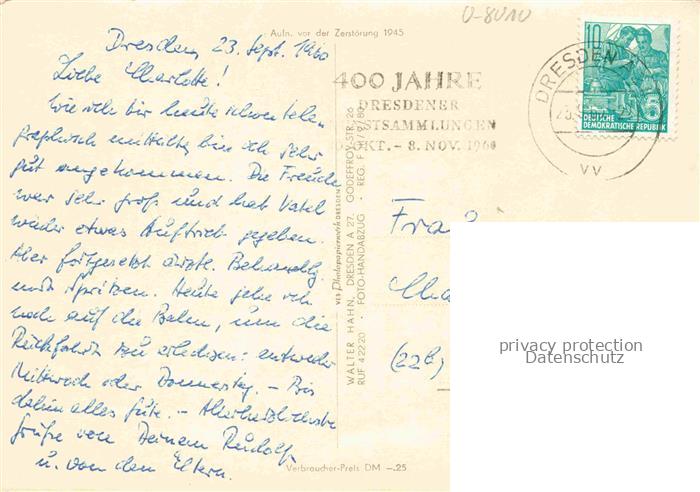 U-8010
Aufn. vor der Zerstörung 1945
Dresden, 23. Sept. 1960
Liebe Charlotte!
Wie ich Dir heute schon telegraphisch mitteilte, bin ich sehr
gut angekommen. Die Freude
war sehr groß und hat Vatel
wieder etwas Auftrieb gegeben.
Aber fortgesetzt ärztl. Behandlg
mit Spritzen. Heute gehe ich
noch auf die Bahn, um die
Rückfahrt zu erledigen: entweder
Mittwoch oder Donnerstag. – Bis
dahin alles Gute. – Allerherzlichste
Grüße von Deinem Rudolf
u. von den Eltern.
400 JAHRE
DRESDENER
STSAMMLUNGEN
OKT. – 8. NOV. 1960
DRESDEN
VV
10
DEUTSCHE
DEMOKRATISCHE REPUBLIK
VEB Photopapierwerk DRESDEN
WALTER HAHN, DRESDEN A 27, GODEFFROY-STR. 26
RUF 42220 · FOTO-HANDABZUG
Verbraucher-Preis DM –.25
(22b)
privacy protection
Datenschutz